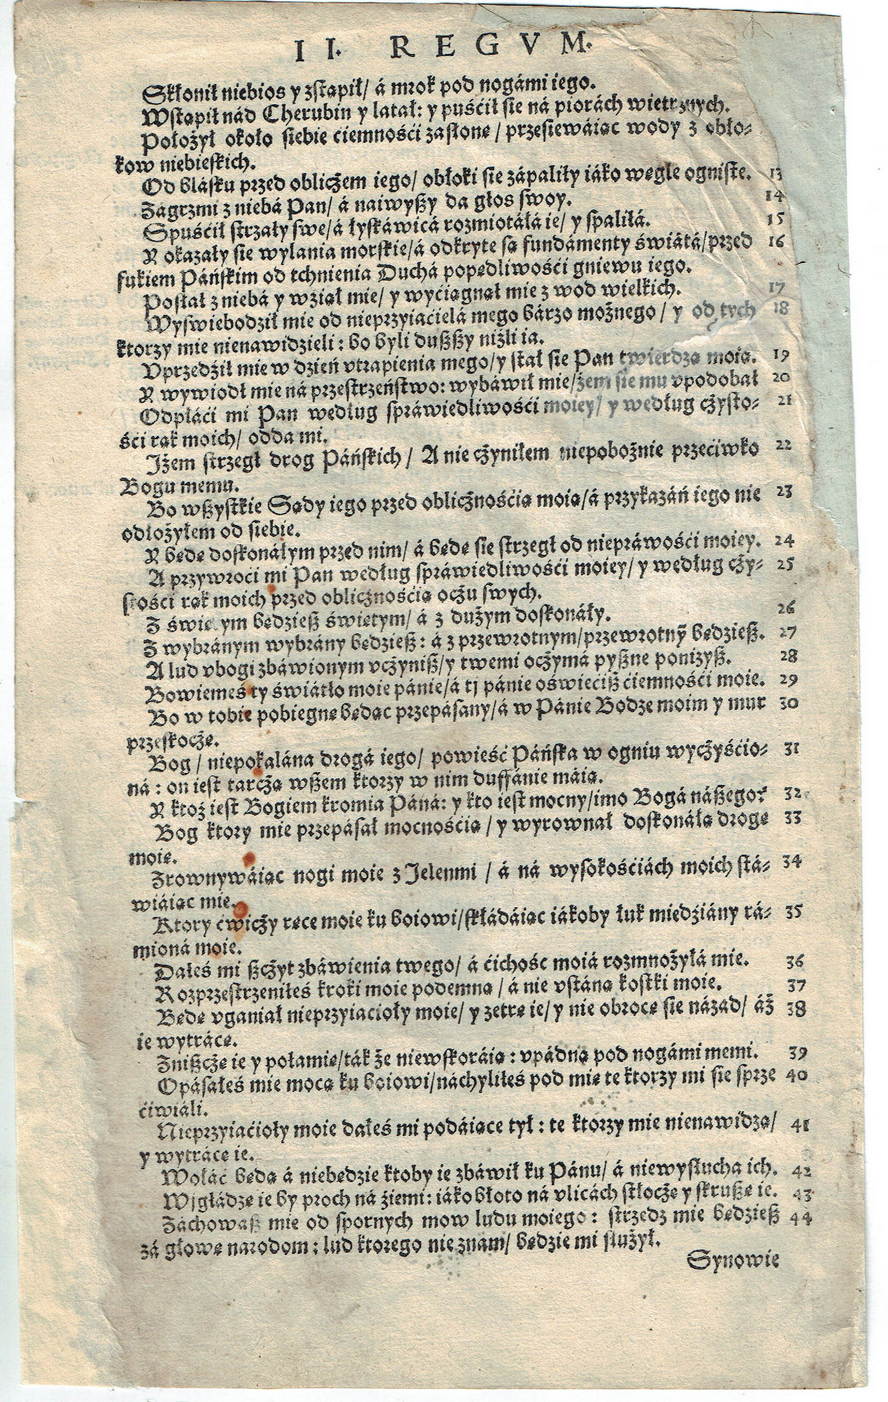 II. REGVM.
Skłonił niebios y zstąpił/ á mrok pod nogámi iego.
Wstąpił nád Cherubin y latał: y puśćił sie ná piorách wietrznych.
Położył około siebie ciemnośći zasłonę/ przesiewáiąc wody z obło-
kow niebieskich.
Od blásku przed obliczem iego/ obłoki sie zápaliły iáko węgle ogniste. 13
Zagrzmi z niebá Pan/ á naiwyßszy da głos swoy. 14
Spuśćił strzały swe/ á łyskáwicá rozmiotáłá ie/ y spaliłá. 15
Y okazały sie wylania morskie/á odkryte są fundámenty świátá/przed 16
fukiem Páńskim od tchnienia Duchá popędliwośći gniewu iego.
Posłał z niebá y wźiął mie/ y wyćiągnął mie z wod wielkich. 17
Wyswiebodźił mie od nieprzyiaćielá mego bárzo możnego/ y od tych 18
ktorzy mie nienawidzieli: bo byli dußszy niżli ia.
Vprzedźił mie w dźień vtrapienia mego/y stał sie Pan twierdzą moią. 19
Y wywiodł mie ná przestrzeństwo: wybáwił mie/żem sie mu vpodobał 20
Odpłáći mi Pan według spráwiedliwośći moiey/ y według cżysto- 21
śći rąk moich/ odda mi.
Jżem strzegł drog Páńskich/ A nie cżyniłem niepobożnie przećiwko 22
Bogu memu.
Bo wßystkie Sądy iego przed oblicżnośćią moią/á przykazáń iego nie 23
odłożyłem od siebie.
Y będę doskonáłym przed nim/ á będę sie strzegł od niepráwośći moiey. 24
A przywroći mi Pan według spráwiedliwośći moiey/ y według cży- 25
stośći rąk moich przed oblicżnośćią ocżu swych.
Z świętym będzieß świętym/ á z dużym doskonáły. 26
Z wybránym wybrány będzieß: á z przewrotnym/przewrotny będzieß. 27
A lud vbogi zbáwionym vcżyniß/y twemi ocżymá pyßne poniżyß. 28
Bowiemeś ty świátło moie pánie/á ty pánie oświećiß ćiemnośći moie. 29
Bo w tobie pobiegnę będąc przepásany/á w Pánie Bodze moim y mur 30
przeskocżę.
Bog/ niepokalána drogá iego/ powieść Páńska w ogniu wycżyśćio- 31
ná: on iest tarcżą wßem ktorzy w nim duffánie máią.
Y ktoż iest Bogiem kromia Páná: y kto iest mocny/imo Bogá náßego? 32
Bog ktory mie przepásał mocnośćią/ y wyrownał doskonáłą drogę 33
moię.
Zrownywáiąc nogi moie z Jelenmi/ á ná wysokośćiách moich stá- 34
wiáiąc mie.
Ktory ćwicży ręce moie ku boiowi/składáiąc iákoby łuk miedźiány rá- 35
mioná moie.
Dałeś mi ßcżyt zbáwienia twego/ á ćichość moiá rozmnożyłá mie. 36
Rozprzestrzeniłeś kroki moie podemną/ á nie vstáną kostki moie. 37
Będę vganiał nieprzyiaćioły moie/ y zetrę ie/ y nie obrocę sie názad/ áż 38
ie wytrácę.
Znißcżę ie y połamię/ták że niewskoráią: vpádną pod nogámi memi. 39
Opásałeś mie mocą ku boiowi/náchyliłeś pod mię te ktorzy mi sie sprze 40
ćiwiáli.
Nieprzyiaćioły moie dałeś mi podáiące tył: te ktorzy mie nienawidzą/ 41
y wytrácę ie.
Wołáć będą á niebędzie ktoby ie zbáwił ku Pánu/ á niewysłucha ich. 42
Wygłádzę ie by proch ná źiemi: iáko błoto ná vlicách stłocżę y skrußę ie. 43
Záchowaß mie od spornych mow ludu moiego: strzedz mie będzieß 44
zá głowę narodom: lud ktorego nie znam/ będzie mi służył.
Synowie